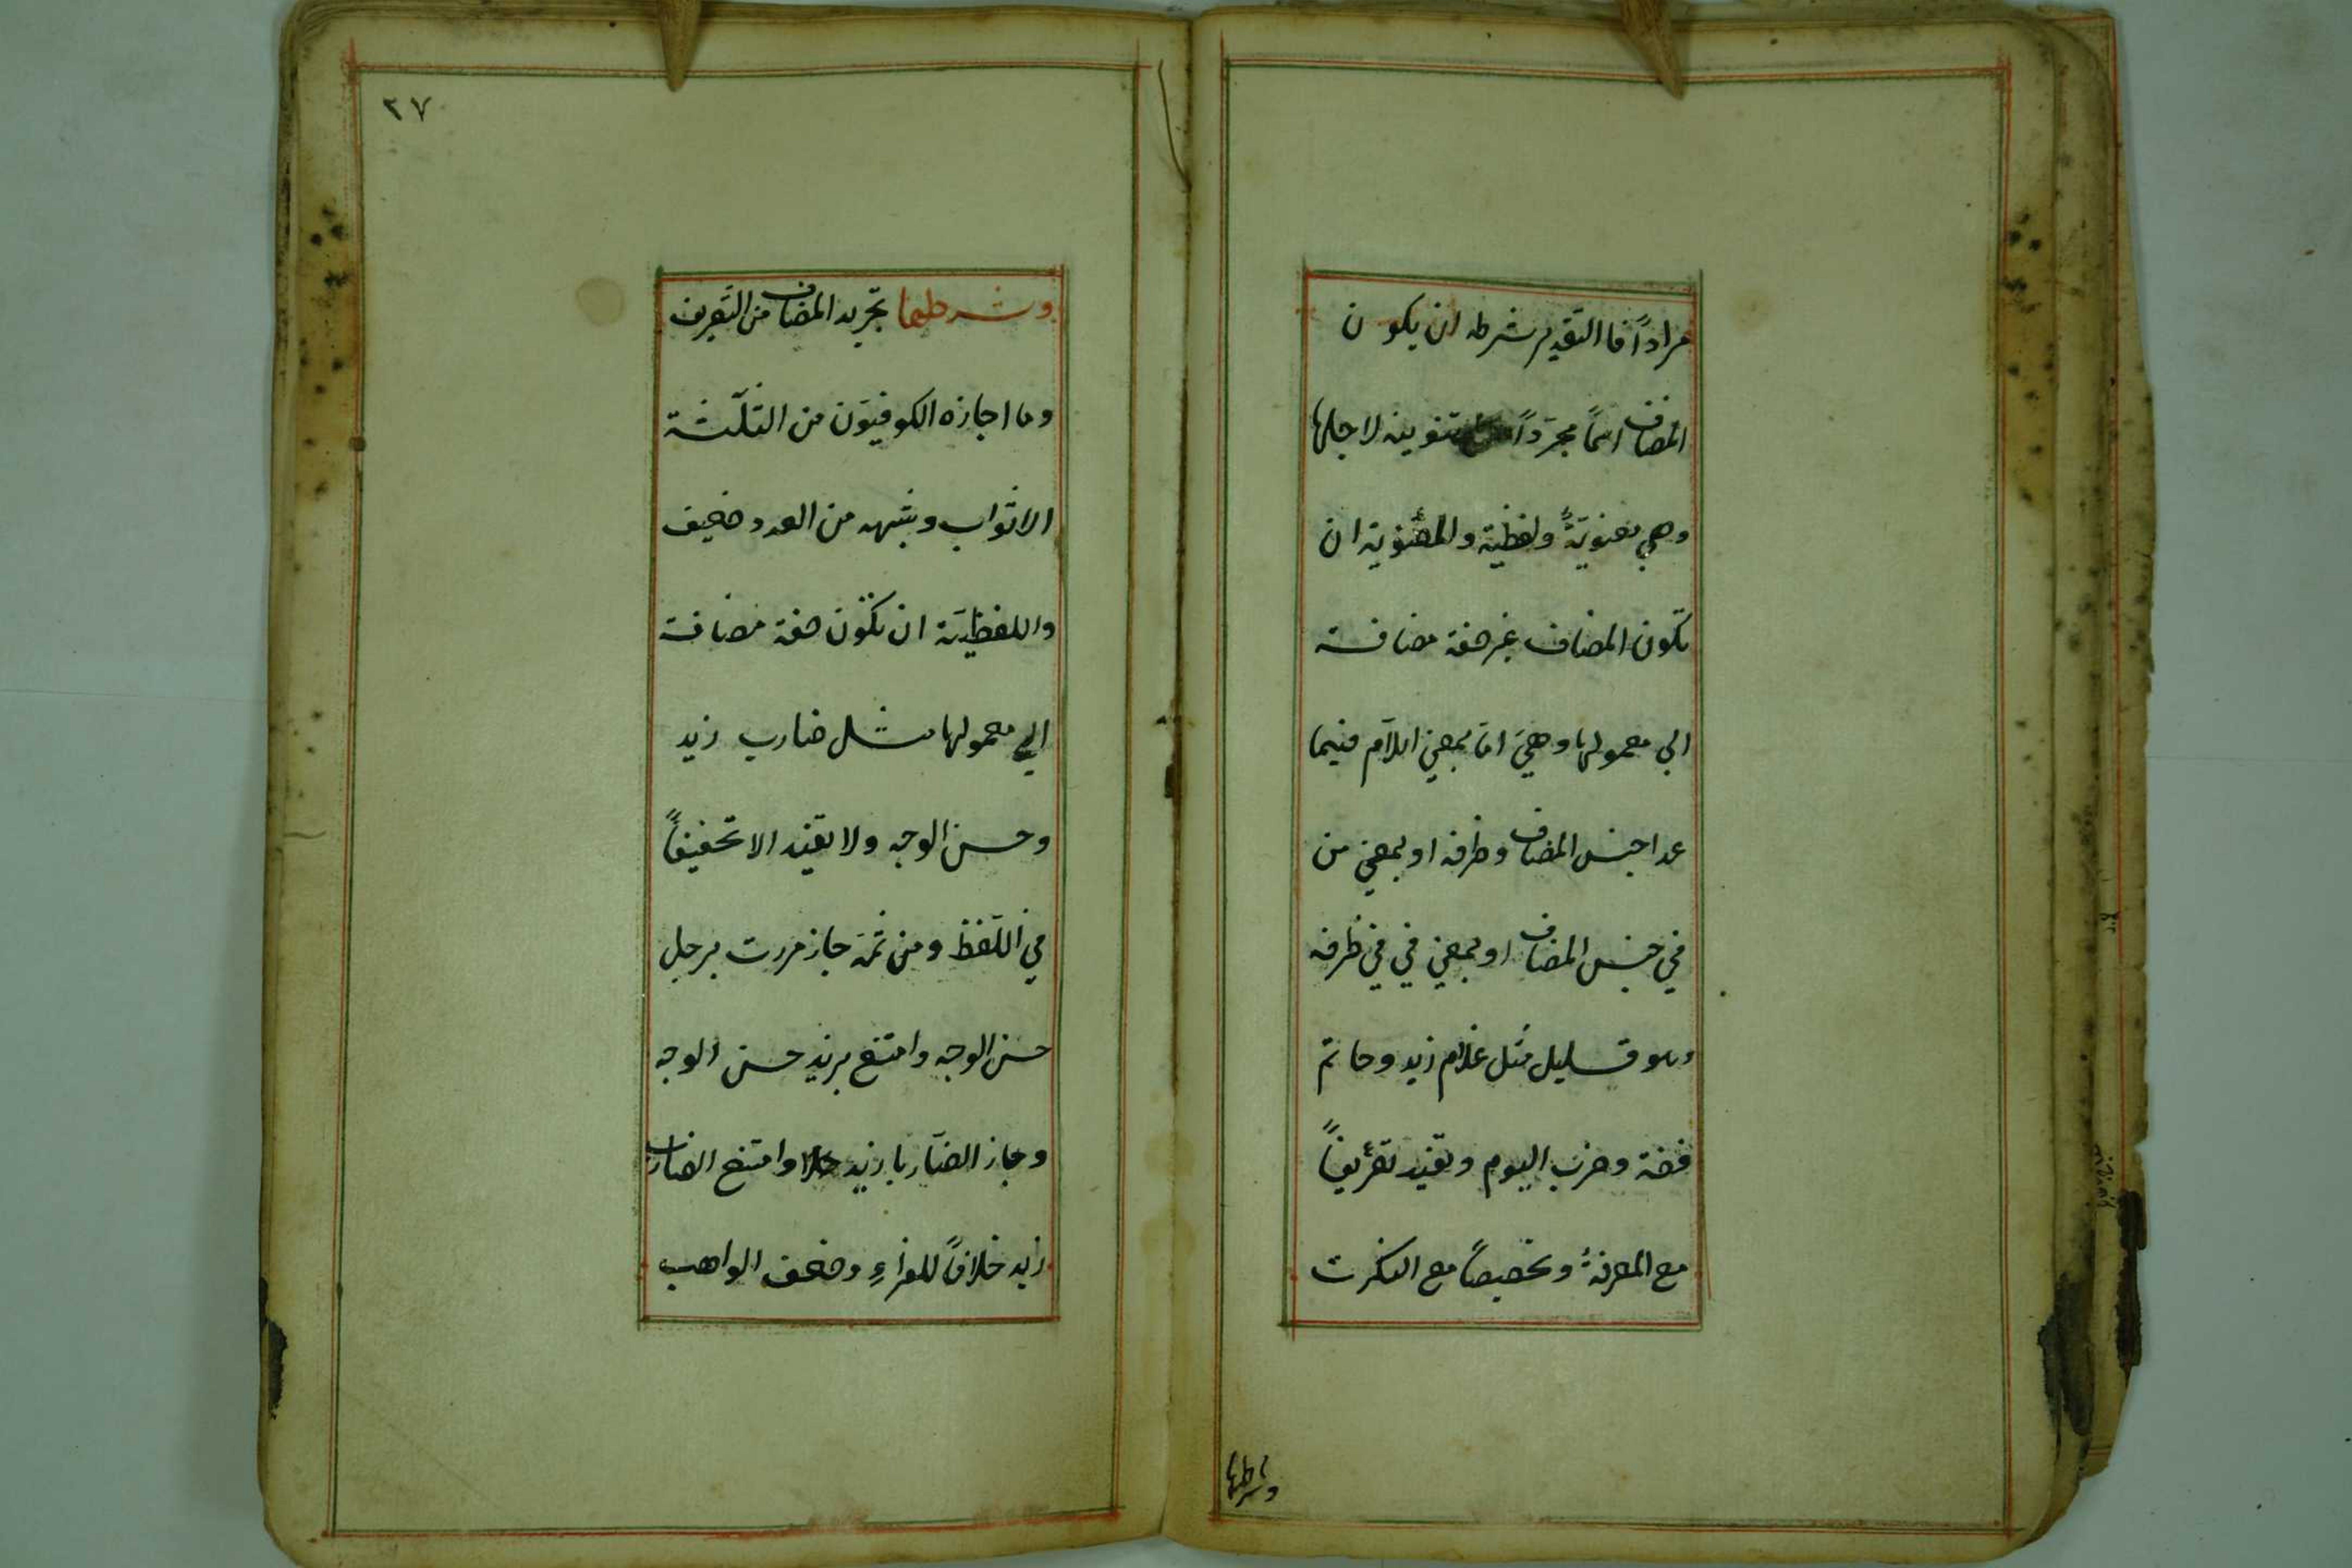 مراداً فا التقدير شرطه ان يكون
المضاف اسماً مجرّداً تنوينه لاجلها
وهي معنويّةً ولفظيّة والمعنويّة ان
يكون المضاف غير صفة مضافة
الي معمولها وهيَ امّا بمعني اللاّم فيما
عدا جنس المضاف وظرفه او بمعني من
في جنس المضاف او بمعني في في ظرفه
وهو قليل مثل غلام زيد وخاتم
فضة وضرب اليوم وتفيد تعريفاً
مع المعرفة وتخصيصاً مع النكرت
وشرطها
٢٧
وشرطها تجريد المضاف من التّعريف
وما اجازه الكوفيّون من الثلّثة
الاثواب وشبهه من العدد ضعيف
واللفظيّة ان تكون صفة مضافة
الي معمولها مثل ضارب زيد
وحسن الوجه ولا تفيد الا تخفيفاً
في اللّفظ ومن ثمّة جاز مررت برجل
حسن الوجه وامتنع بزيد حسن الوجه
وجاز الضّاربا زيد وامتنع الضارب
زيد خلافاً للفراءِ وضعف الواهب